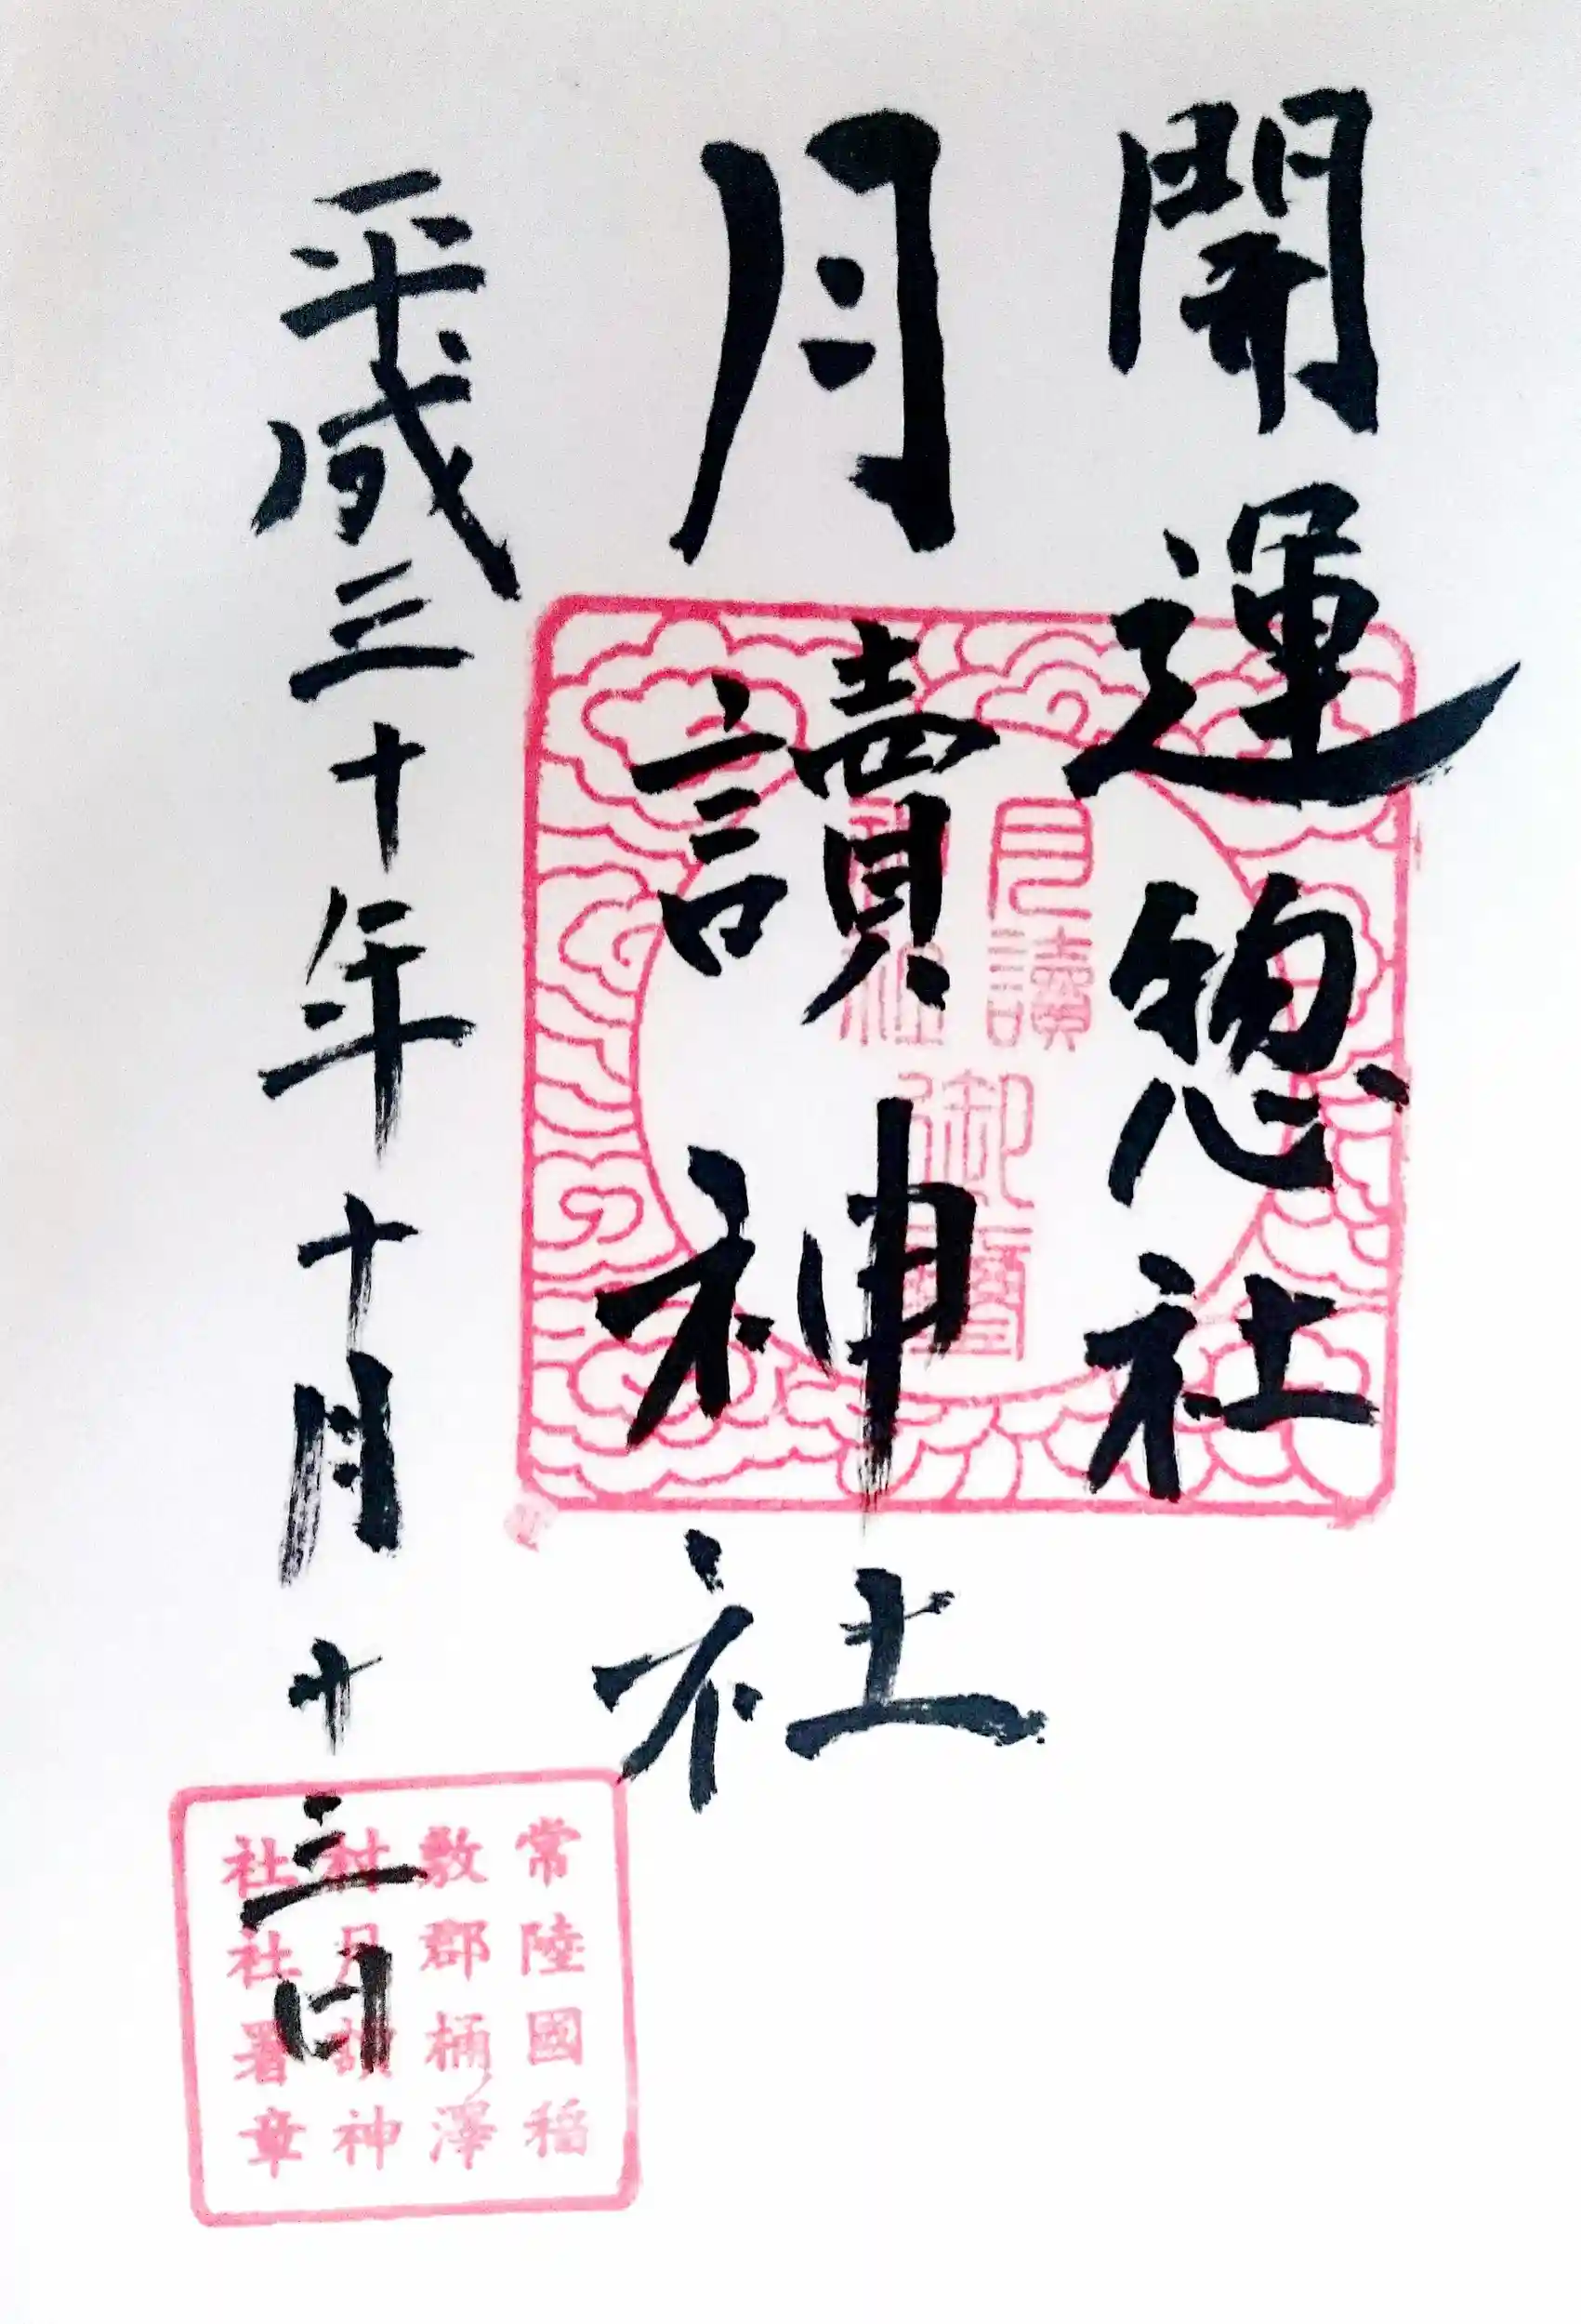 開運惣社
月讀神社
平成三十年十月廿三日
月讀
神社
御璽
常陸國稲
敷郡桶澤
村月讀神
社社署章